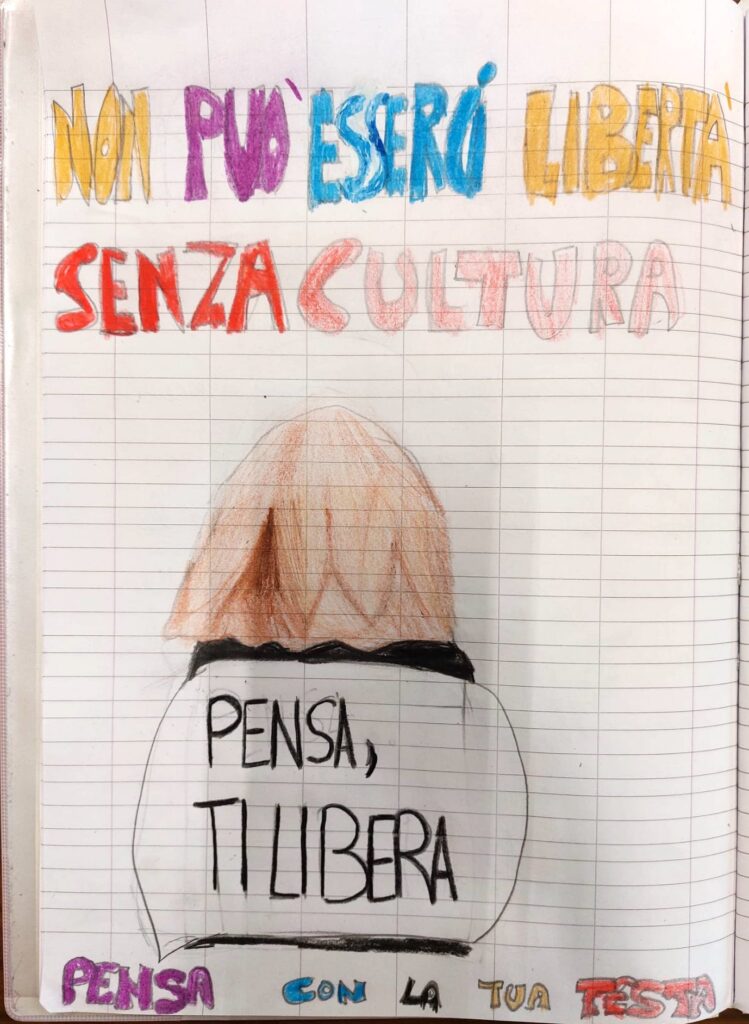 NON PUO' ESSERCi LIBERTA'
SENZA CULTURA
PENSA,
TI LIBERA
PENSA CON LA TUA TESTA